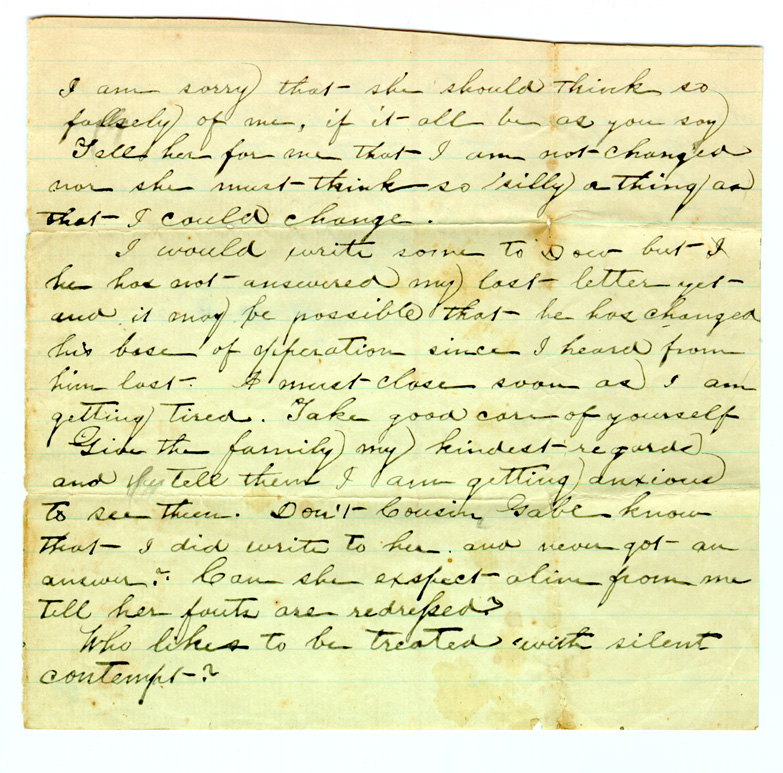 I am sorry that she should think so
falsely of me, if it all be as you say
Tell her for me that I am not changed
nor she must think so silly a thing as
that I could change.
I would write some to Dow but I
he has not answered my last letter yet
and it may be possible that he has changed
his base of opperation since I heard from
him last. I must close soon as I am
getting tired. Take good care of yourself
Give the family my kindest regards
and tell them I am getting anxious
to see them. Don't Cousin Gabe know
that I did write to her and never got an
answer? Can she exspect aline from me
till her fauts are redressed?
Who likes to be treated with silent
contempt?